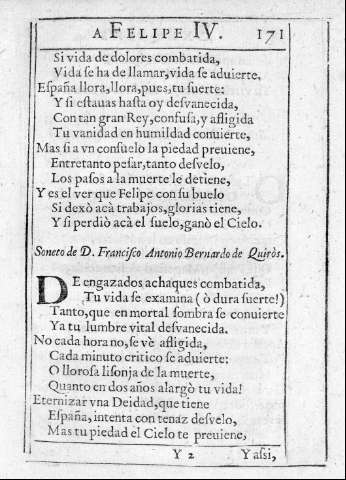 A FELIPE IV. 171
Si vida de dolores combatida,
Vida se ha de llamar, vida se aduierte,
España llora, llora, pues, tu suerte:
Y si estauas hasta oy desvanecida,
Con tan gran Rey, confusa, y afligida
Tu vanidad en humildad conuierte,
Mas si a vn consuelo la piedad preuiene,
Entretanto pesar, tanto desvelo,
Los pasos a la muerte le detiene,
Y es el ver que Felipe con su buelo
Si dexò acà trabajos, glorias tiene,
Y si perdiò acà el suelo, ganò el Cielo.
Soneto de D. Francisco Antonio Bernardo de Quiròs.
DE engazados achaques combatida,
Tu vida se examina (ò dura suerte!)
Tanto, que en mortal sombra se conuierte
Ya tu lumbre vital desvanecida.
No cada hora no, se vè afligida,
Cada minuto critico se aduierte:
O llorosa lisonja de la muerte,
Quanto en dos años alargò tu vida!
Eternizar vna Deidad, que tiene
España, intenta con tenaz desvelo,
Mas tu piedad el Cielo te preuiene,
Y 2 Y assi,